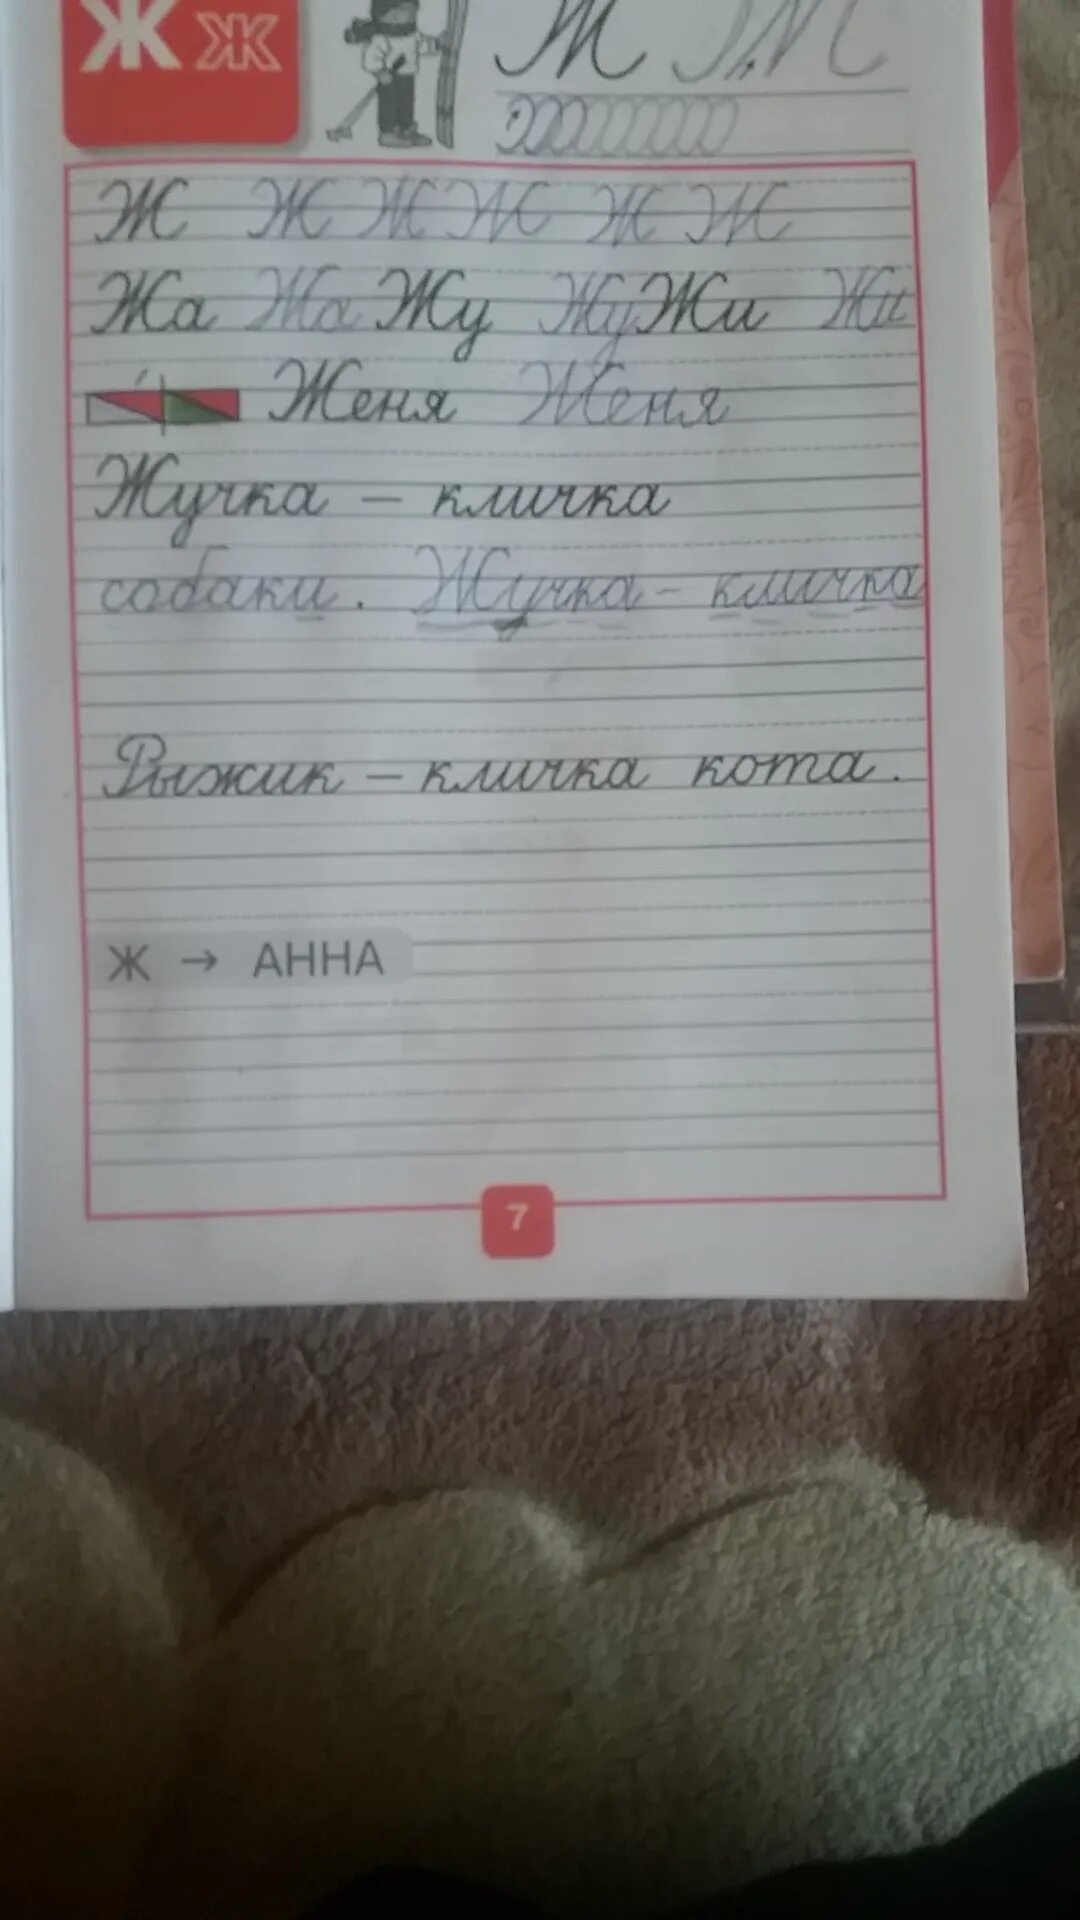 Ж ж Ж Ж
Ж Ж Ж Ж Ж Ж
Жа Жа Жу Жу Жи Жи
Женя Женя
Жучка – кличка
собаки. Жучка – кличка
Рыжик – кличка кота.
Ж → АННА
7